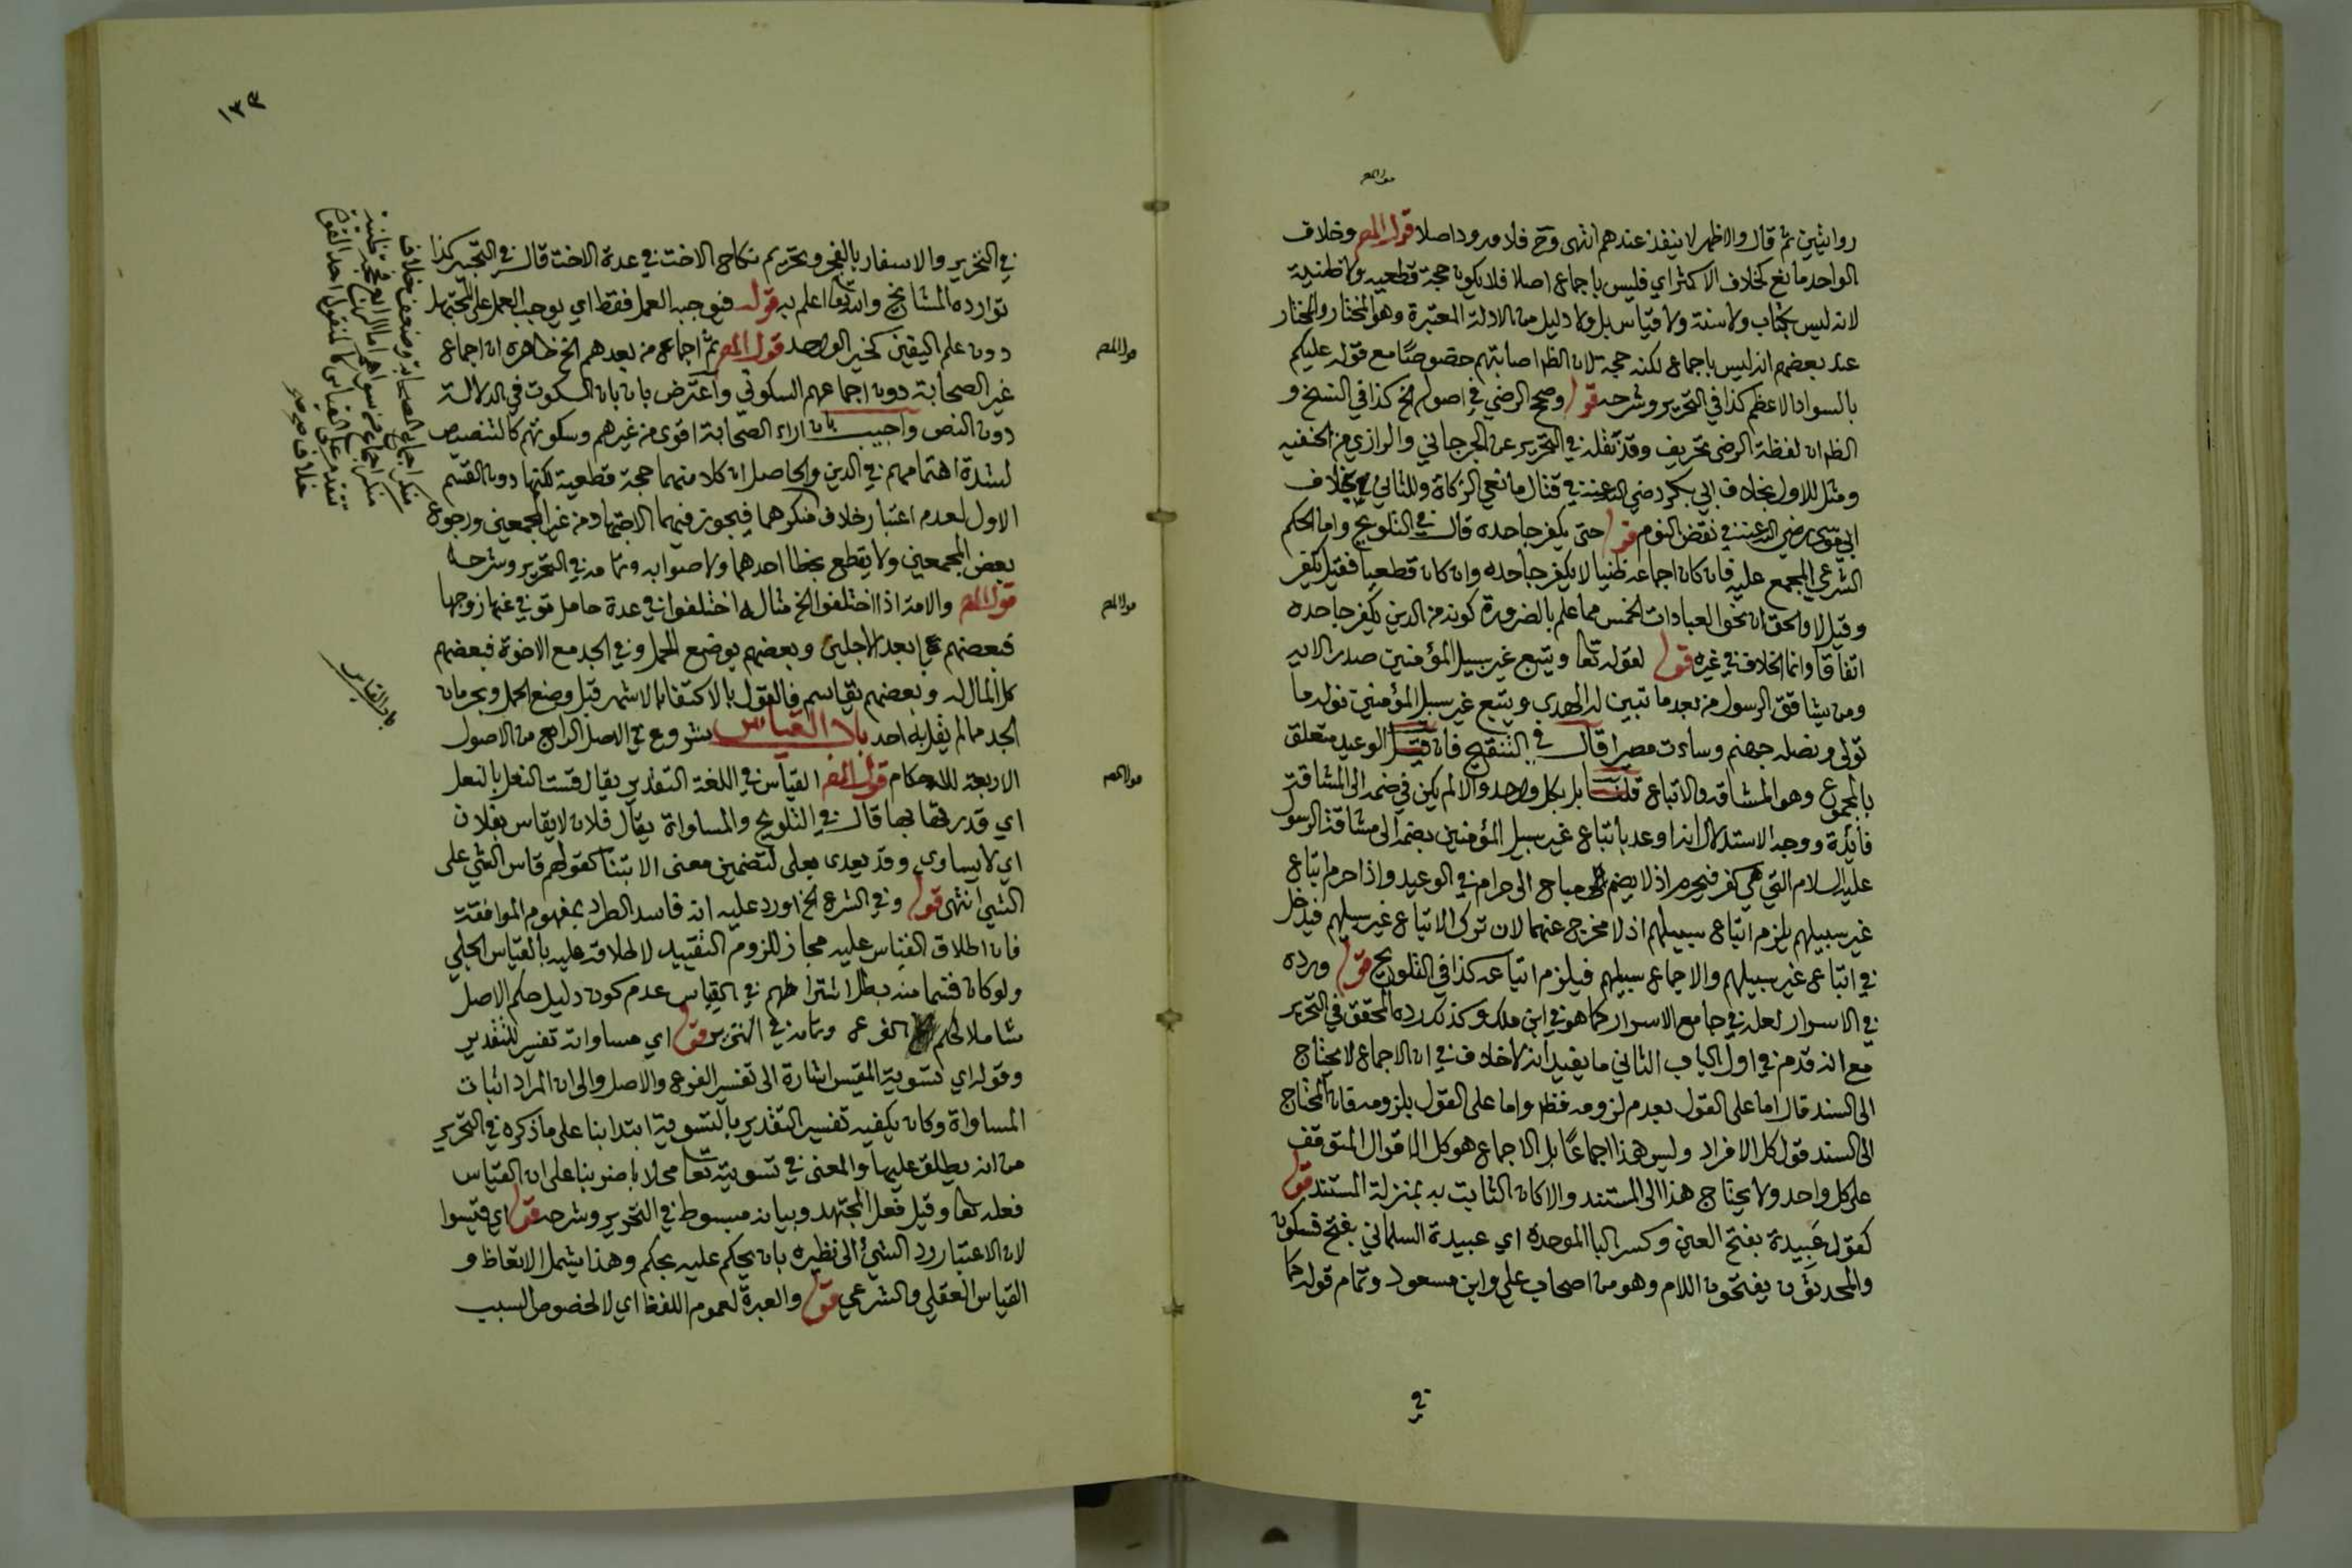 روايتين ثم قال والاظهر لا ينفذ عندهم انتهى وح فلا ورود اصلا قول المص وخلاف
الواحد مانع كخلاف الاكثر اي فليس باجماع اصلا فلا يكون حجة قطعيه ولا ظنية
لانه ليس بكتاب ولا سنة ولا قياس بل ولا دليل من الادلة المعتبرة وهو المختار والمختار
عند بعضهم انه ليس باجماع لكنه حجة لان الظ اصابتهم خصوصا مع قوله عليكم
بالسواد الاعظم كذا في التحرير وشرحه قوله وصحح الرضي في اصوله الخ كذا في النسخ و
الظ ان لفظة الرضى تحريف وقد نقله في التحرير عن الجرجاني والرازي من الحنفيه
ومثل للاول بخلاف ابي بكر رضي الله عنه في قتال مانعي الزكاة وللثاني بخلاف
ابي موسى رضي الله عنه في نقض النوم قوله حتى يكفر جاحده قال في التلويح واما الحكم
الشرعي المجمع عليه فان كان اجماعه ظنيا لا يكفر جاحده وان كان قطعيا فقيل يكفر
وقيل لا والحق ان نحو العبادات الخمس مما علم بالضرورة كونه من الدين يكفر جاحده
اتفاقا وانما الخلاف في غيره قوله لقوله تعا ويتبع غير سبيل المؤمنين صدر الايه
ومن يشاقق الرسول من بعد ما تبين له الهدى ويتبع غير سبيل المؤمنين نوله ما
تولى ونصله جهنم وساءت مصيرا قال في التنقيح فان قيل الوعيد متعلق
بالمجموع وهو المشاقه والاتباع قلنا بل بكل واحد والا لم يكن في ضمه الى المشاقة
فائدة ووجه الاستدلال انه اوعد باتباع غير سبيل المؤمنين بضمه الى مشاقة الرسول
عليه السلام التي هي كفر فيحرم اذ لا يضم مباح الى حرام في الوعيد واذا حرم اتباع
غير سبيلهم يلزم اتباع سبيلهم اذ لا مخرج عنهما لان ترك الاتباع غير سبيلهم فيدخل
في اتباع غير سبيلهم والاجماع سبيلهم فيلزم اتباعه كذا في التلويح قوله ورده
في الاسرار لعله في جامع الاسرار كما هو في ابن ملك وكذلك رده المحقق في التحرير
مع انه قدم في اول الباب الثاني ما يفيد انه لا خلاف في ان الاجماع لا يحتاج
الى السند قال اما على القول بعدم لزومه فظ واما على القول بلزومه فان المحتاج
الى السند قول كل الافراد وليس هذا اجماعا بل الاجماع هو كل الاقوال المتوقف
على كل واحد ولا يحتاج هذا الى المستند والا كان الثابت به بمنزلة المستند قوله
كقول عبيدة بفتح العين وكسر البا الموحده اي عبيدة السلماني بفتح فسكون
والمحدثون يفتحون اللام وهو من اصحاب علي وابن مسعود وتمام قوله كما
في
١٣٣
في التحرير والاسفار بالفجر وتحريم نكاح الاخت في عدة الاخت قال في التحبير كذا
توارده المشايخ والله تعا اعلم به قوله فيوجب العمل فقط اي يوجب العمل على المجتهد
دون علم اليقين كخبر الواحد قول المص ثم اجماع من بعدهم الخ ظاهره ان اجماع
غير الصحابة دون اجماعهم السكوتي واعترض بان السكوت في الدلالة
دون النص واجيب بان اراء الصحابة اقوى من غيرهم وسكوتهم كالتنصيص
لشدة اهتمامهم في الدين والحاصل ان كلا منهما حجة قطعية لكنها دون القسم
الاول لعدم اعتبار خلاف منكرهما فيجوز فيهما الاجتهاد من غير المجمعين ورجوع
بعض المجمعين ولا يقطع بخطا احدهما ولا صوابه وتمامه في التحرير وشرحه
قول المص والامة اذا اختلفوا الخ مثاله اختلفوا في عدة حامل توفي عنها زوجها
فبعضهم بابعد الاجلين وبعضهم بوضع الحمل وفي الجد مع الاخوة فبعضهم
كل المال له وبعضهم يقاسم فالقول بالاكتفا بالاشهر قبل وضع الحمل وبحرمان
الجد مما لم يقل به احد باب القياس شروع في الاصل الرابع من الاصول
الاربعة للاحكام قول المص القياس في اللغة التقدير يقال قست النعل بالنعل
اي قدرتها بها قال في التلويح والمساواة يقال فلان لا يقاس بفلان
اي لا يساوى وقد يعدى بعلى لتضمين معنى الابتنا كقولهم قاس الشي على
الشي انتهى قوله وفي الشرع الخ اورد عليه انه فاسد الطرد بمفهوم الموافقة
فان اطلاق القياس عليه مجاز للزوم التقييد لاطلاقه عليه بالقياس الجلي
ولو كان قسما منه بطل اشتراطهم في القياس عدم كون دليل حكم الاصل
شاملا لحكم الفرع وتمامه في التحرير قوله اي مساواته تفسير للتقدير
وقوله اي تسوية المقيس اشارة الى تفسير الفرع والاصل والى ان المراد اثبات
المساواة وكان يكفيه تفسير التقدير بالتسوية ابتدا بنا على ما ذكره في التحرير
من انه يطلق عليها والمعنى في تسويته تعا محلا باخر بنا على ان القياس
فعله تعا وقيل فعل المجتهد وبيانه مبسوط في التحرير وشرحه قوله اي قيسوا
لان الاعتبار رد الشي الى نظيره بان يحكم عليه بحكمه وهذا يشمل الاتعاظ و
القياس العقلي والشرعي قوله والعبرة لعموم اللفظ اي لا لخصوص السبب
باب القياس